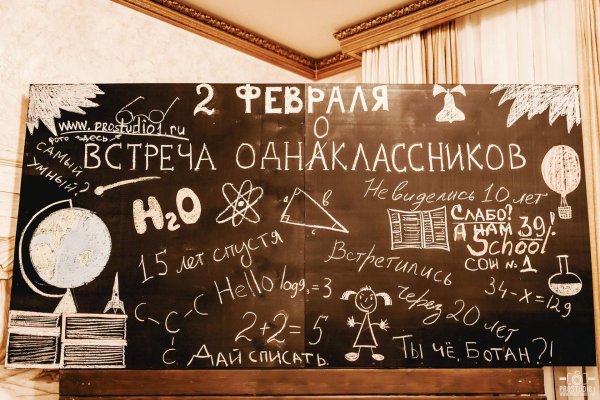 2 ФЕВРАЛЯ
www.prostudio1.ru
фото здесь
О
ВСТРЕЧА ОДНАКЛАССНИКОВ
САМЫЙ
УМНЫЙ?
H₂O
a
b
c
Не виделись 10 лет
СЛАБО?
А НАМ 39!
School
СОШ №1
15 лет спустя
Встретились
через 20 лет
34-x=129
C
C
C
C
Hello
log9₁=3
2+2=5
ДАЙ СПИСАТЬ.
ТЫ ЧЁ, БОТАН?!
PROSTUDIO1